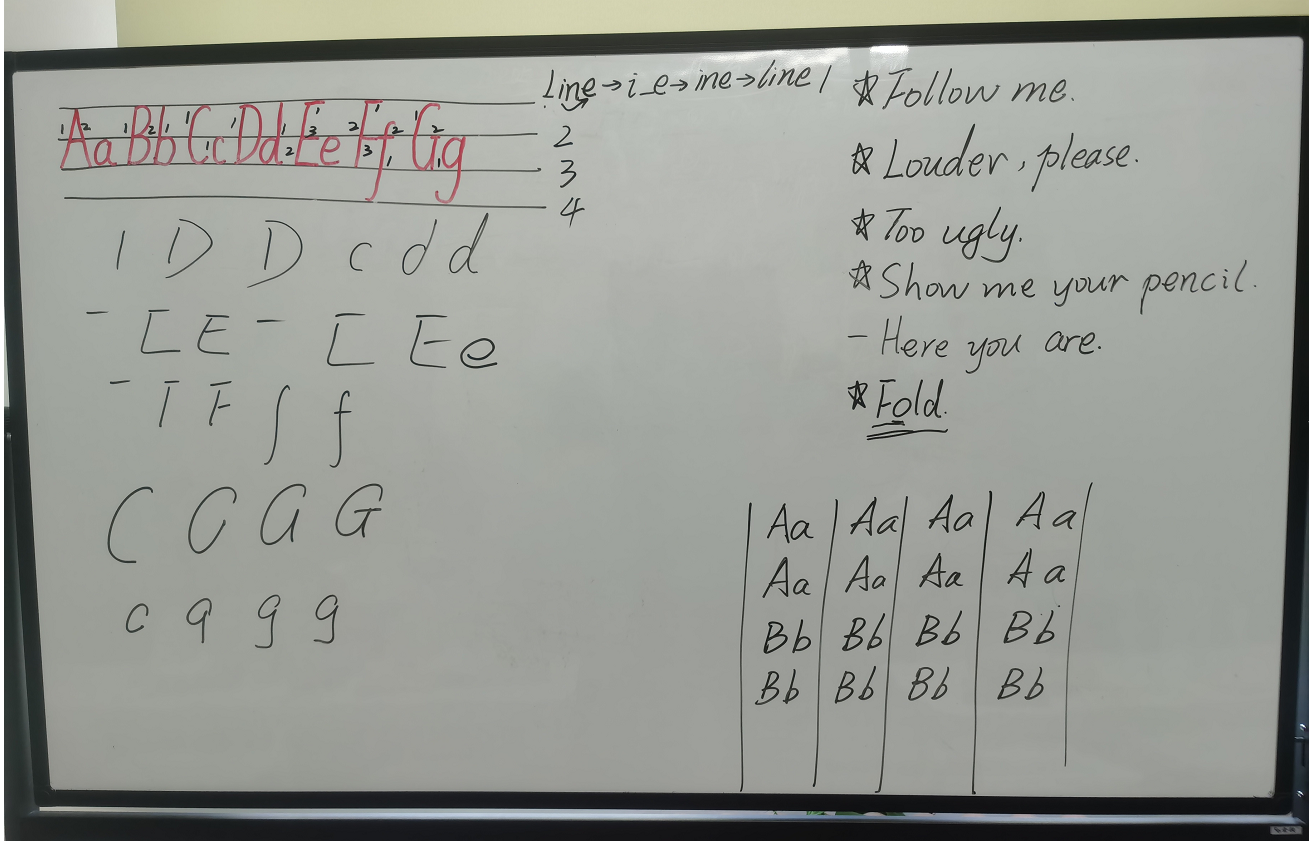 Line→i_e→ine→line 1
Aa Bb Cc Dd Ee Ff Gg
2
3
4
l D D c d d
– [ E – [ E e
– T F ʃ f
C G G G
c q g g
☆ Follow me.
☆ Louder, please.
☆ Too ugly.
☆ Show me your pencil.
– Here you are.
☆ Fold.
| Aa | Aa | Aa | Aa |
Aa Aa Aa Aa
Bb Bb Bb Bb
Bb Bb Bb Bb